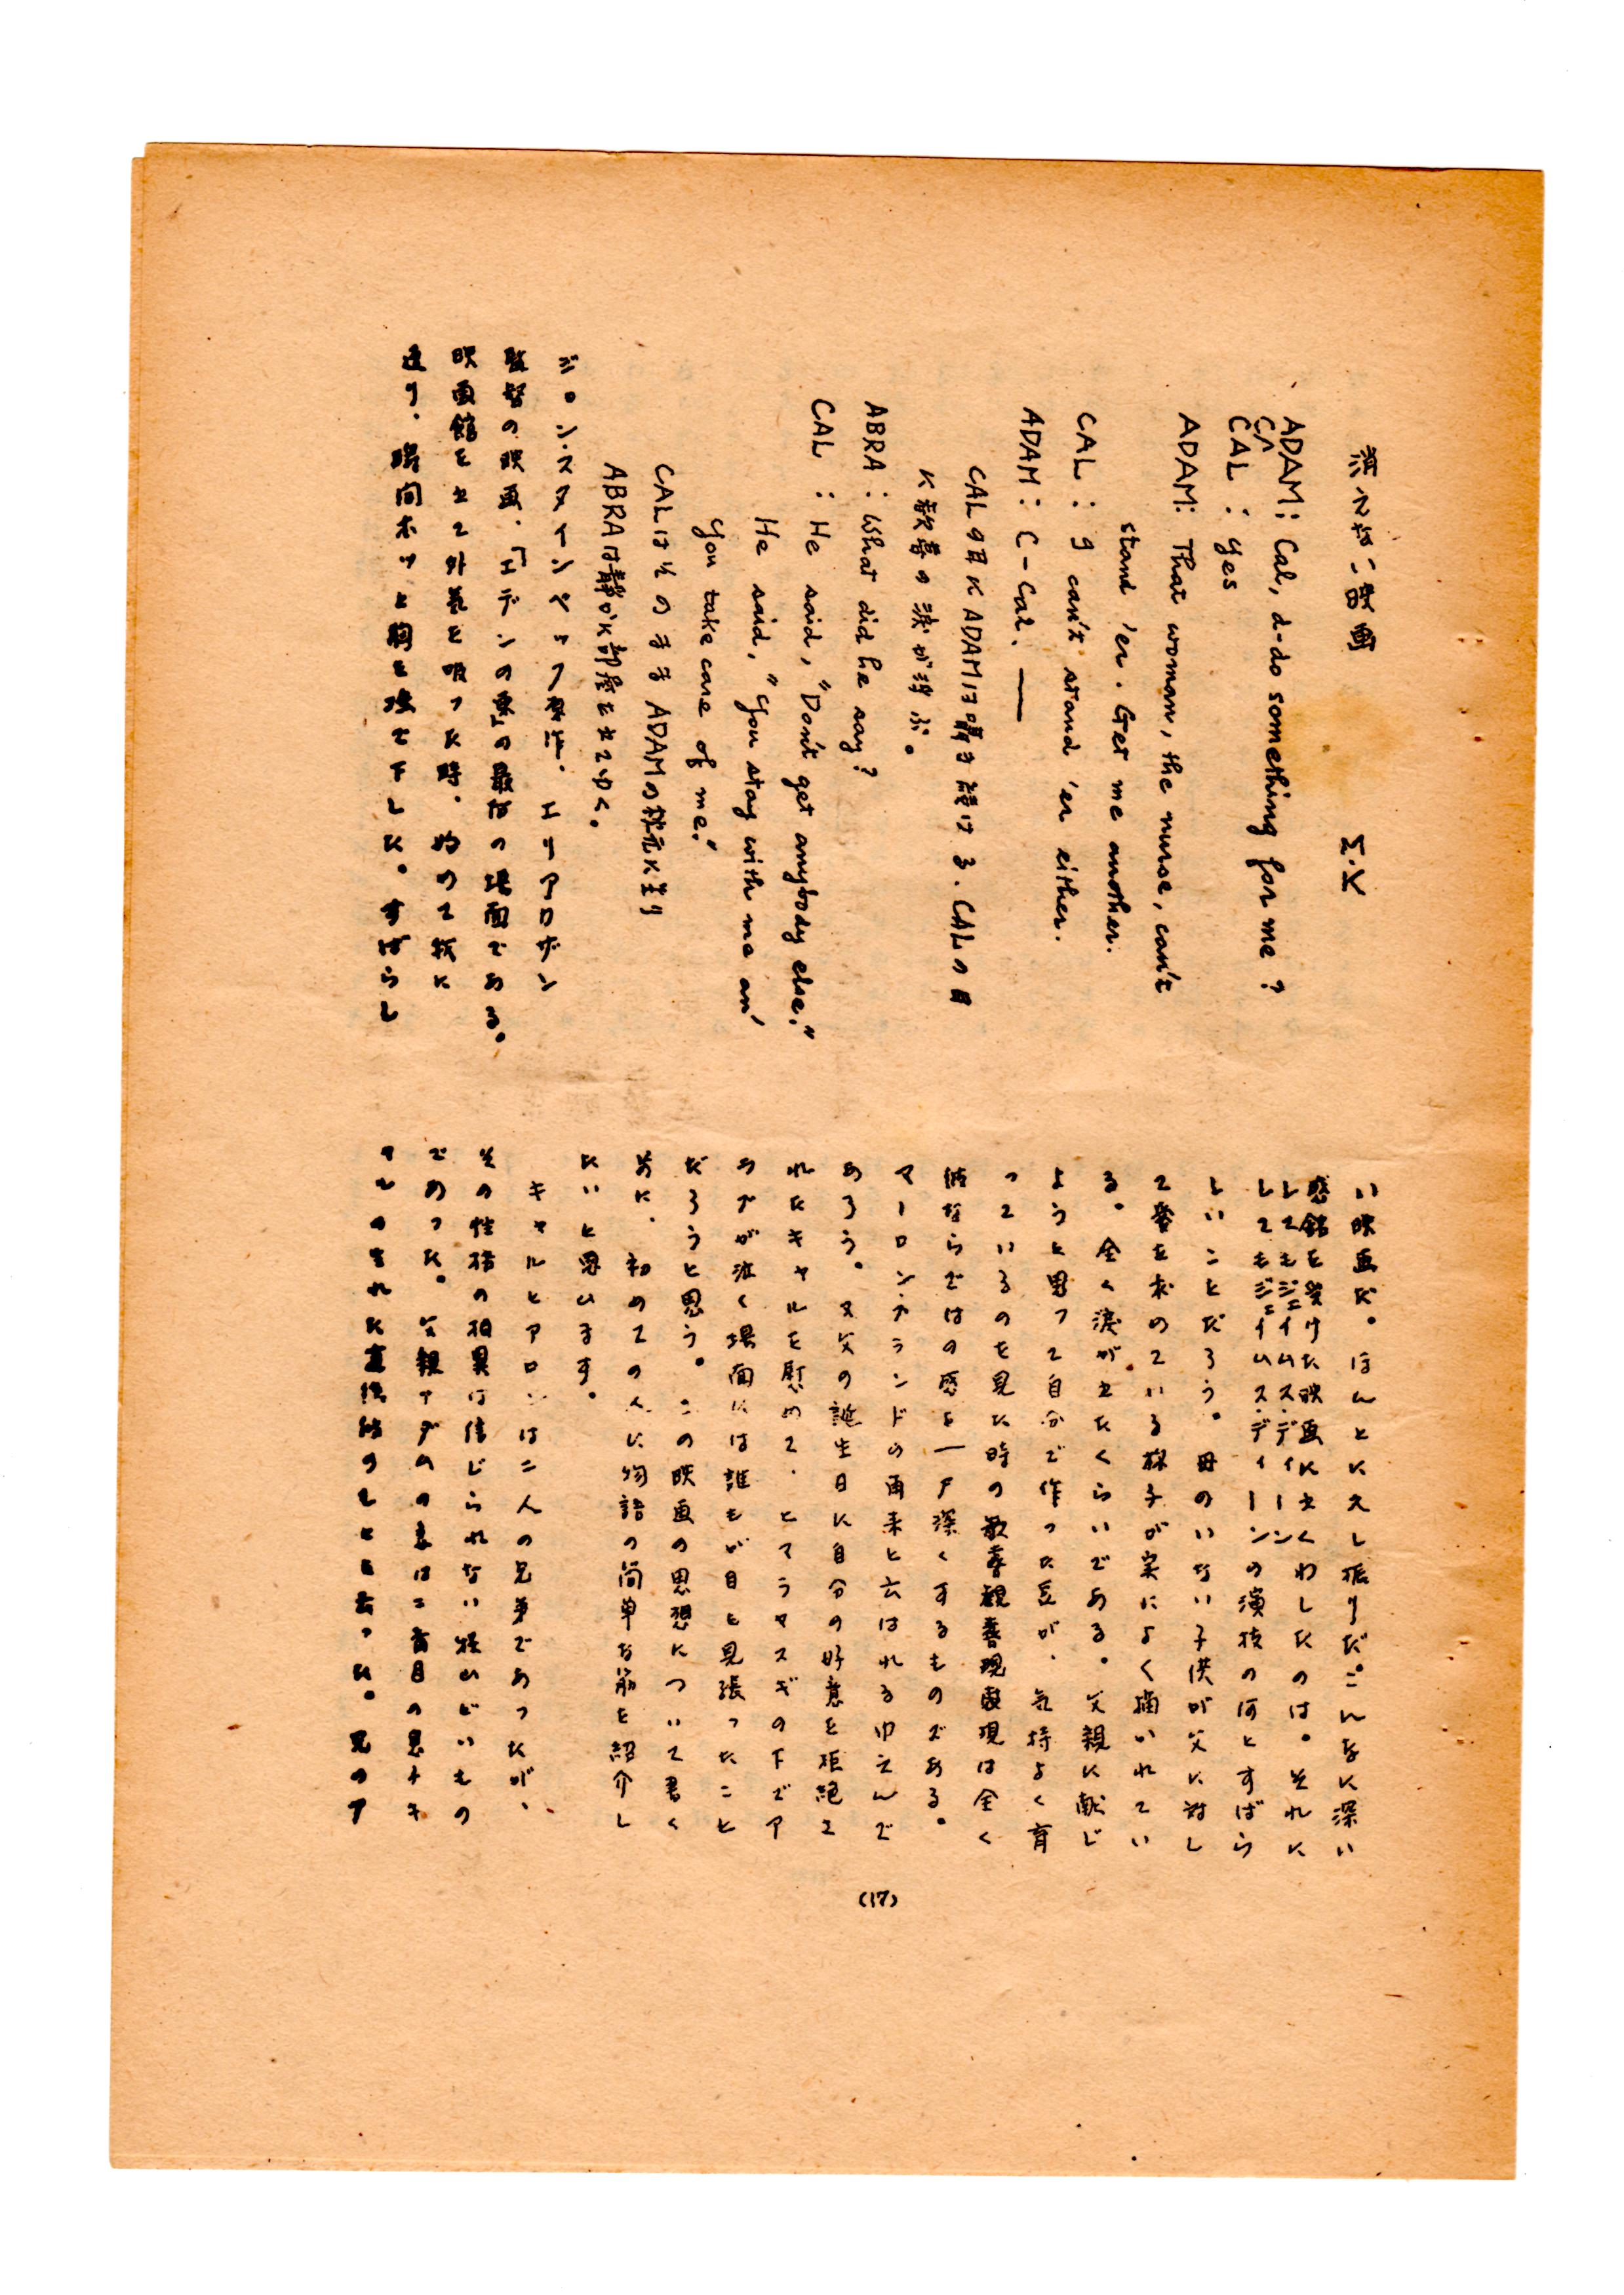 Σ・X
ADAM: Cal, d-do something for me?
CA
CAL : Yes
ADAM: That woman, the nurse, can't
stand 'er. Get me another.
CAL : I can't stand 'er either.
ADAM: C-Cal. ——
CALの耳にADAMは囁き続ける. CALの目
に歓喜の涙が浮ぶ。
ABRA: What did he say?
CAL : He said, "Don't get anybody else."
He said, "You stay with me an'
You take care of me."
CALはそのままADAMの枕元に坐り
ABRAは静かに部屋を出てゆく。
ジョン・スタインベック原作. エリアロザン
監督の映画.「エデンの東」の最后の場面である。
映画館を出て外気を吸った時. 始めて我に
返り. 瞬間ホッと胸を撫で下した。すばらし
い映画だ。ほんとに久し振りだ。こんなに深い
感銘を受けた映画に出くわしたのは。それに
してもジェイムス・ディーン
してもジェイムス・ディーンの演技の何とすばら
しいことだろう。母のいない子供が父に対し
て愛を求めている様子が実によく描いれてい
る。全く涙が出たくらいである。父親に献じ
ようと思って自分で作った豆が、気持よく育
っているのを見た時の歓喜観喜現表現は全く
彼ならではの感を一戸深くするものである。
マーロン・ブランドの再来と云はれるゆえんで
あろう。又父の誕生日に自分の好意を拒絶さ
れたキャルを慰めて. とマラヤスギの下でア
ラブが泣く場面には誰もが目を見張ったこと
だろうと思う。この映画の思想について書く
前に. 初めての人に物語の簡単な筋を紹介し
たいと思います。
キャルとアロンは二人の兄弟であったが、
その性格の相異は信じられない程ひどいもの
であった。父親アダムの
と云った。兄のア
(17)